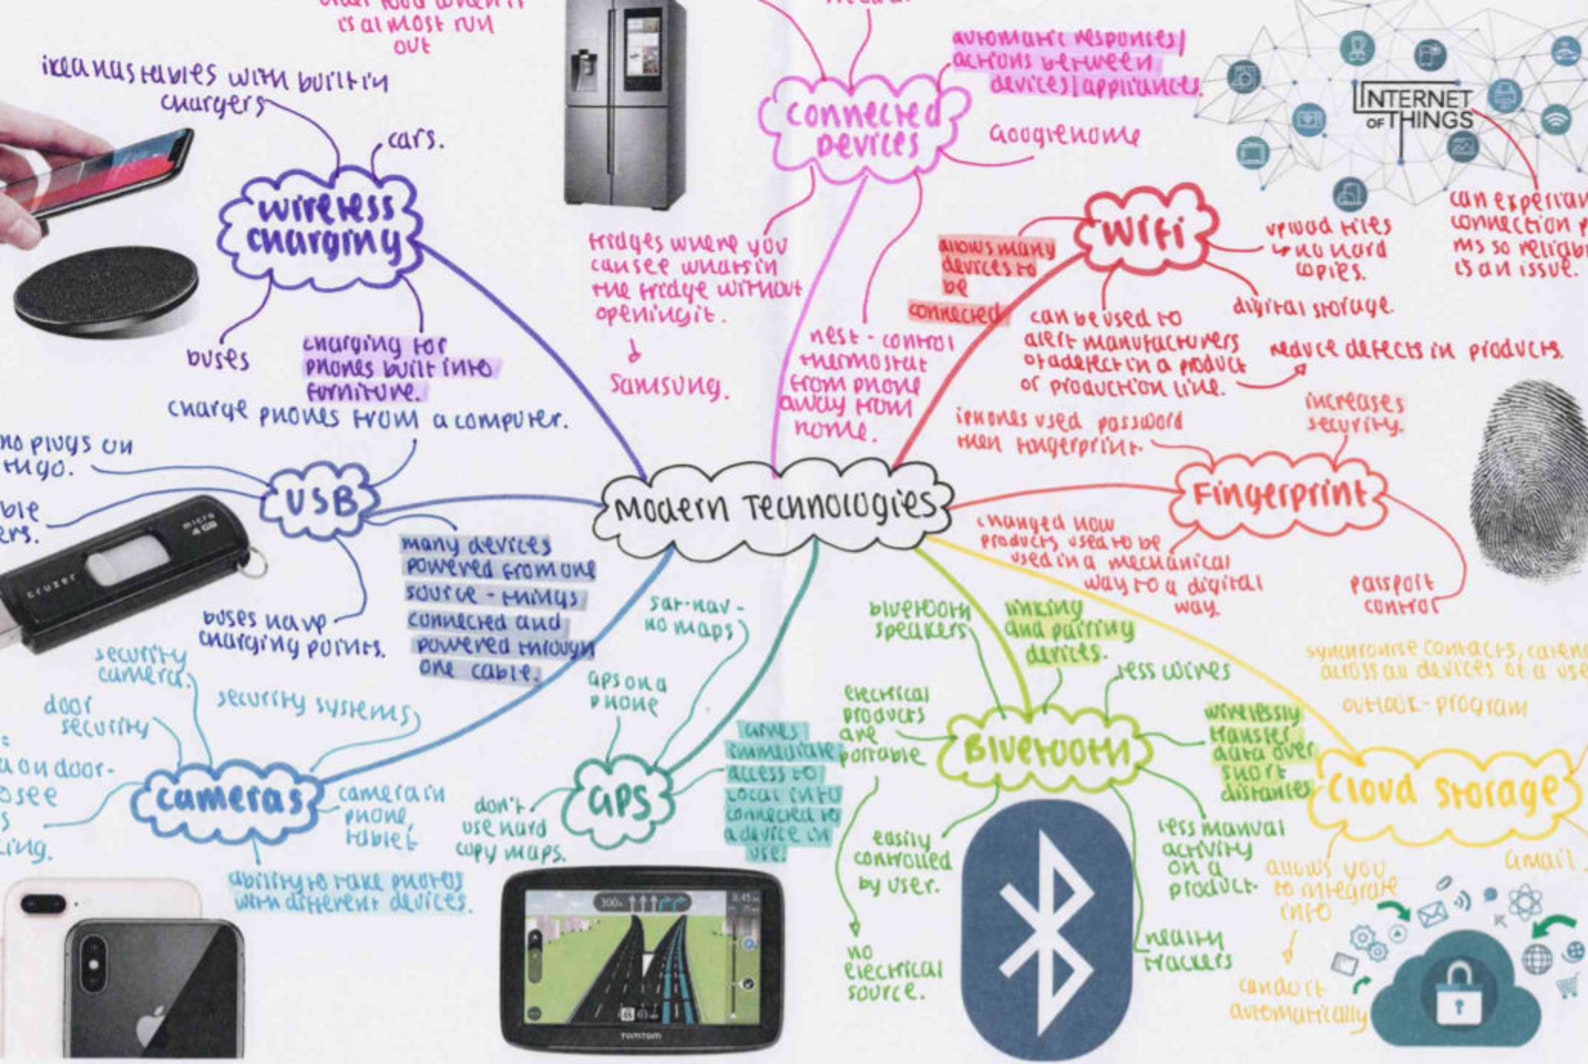 is almost run
out
ikea has tables with built in
chargers
cars.
wireless
charging
buses
charging for
phones built into
furniture.
automatic responses/
actions between
devices/appliances.
connected
devices
Google home
fridges where you
can see whats in
the fridge without
opening it.
Samsung.
nest - control
thermostat
from phone
away from
home.
INTERNET
OF THINGS
can experian
connection p
ms so reliab
is an issue.
WiFi
allows many
devices to
be
connected
upload files
no hard
copies.
digital storage.
can be used to
alert manufacturers
of a defect in a product
or production line.
reduce defects in products.
charge phones from a computer.
no plugs on
USB
ble
ers.
micro
4 GB
cruzer
many devices
powered from one
source - things
connected and
powered through
one cable.
buses have
charging points.
Modern Technologies
iphones used password
then fingerprint.
increases
security.
Fingerprint
changed how
products used to be
used in a mechanical
way to a digital
way.
passport
control
security
camera.
door
security
security systems
on door-
see
ing.
cameras
camera in
phone,
tablet
ability to take photos
with different devices.
sat-nav -
no maps
GPS on a
phone
GPS
don't
use hard
copy maps.
Gives
immediate
access to
local info
connected to
a device in
use.
TOMTOM
bluetooth
speakers
linking
and pairing
devices.
less wires
electrical
products
are
portable
Bluetooth
wirelessly
transfer
data over
short
distances
easily
controlled
by user.
no
electrical
source.
less manual
activity
on a
product.
health
trackers
synchronise contacts, calen
across all devices of a use
outlook - program
Cloud storage
allows you
to integrate
info
can do it
automatically
Gmail